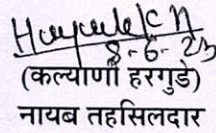 8-6-23
(कल्याणी हरगुडे)
नायब तहसिलदार